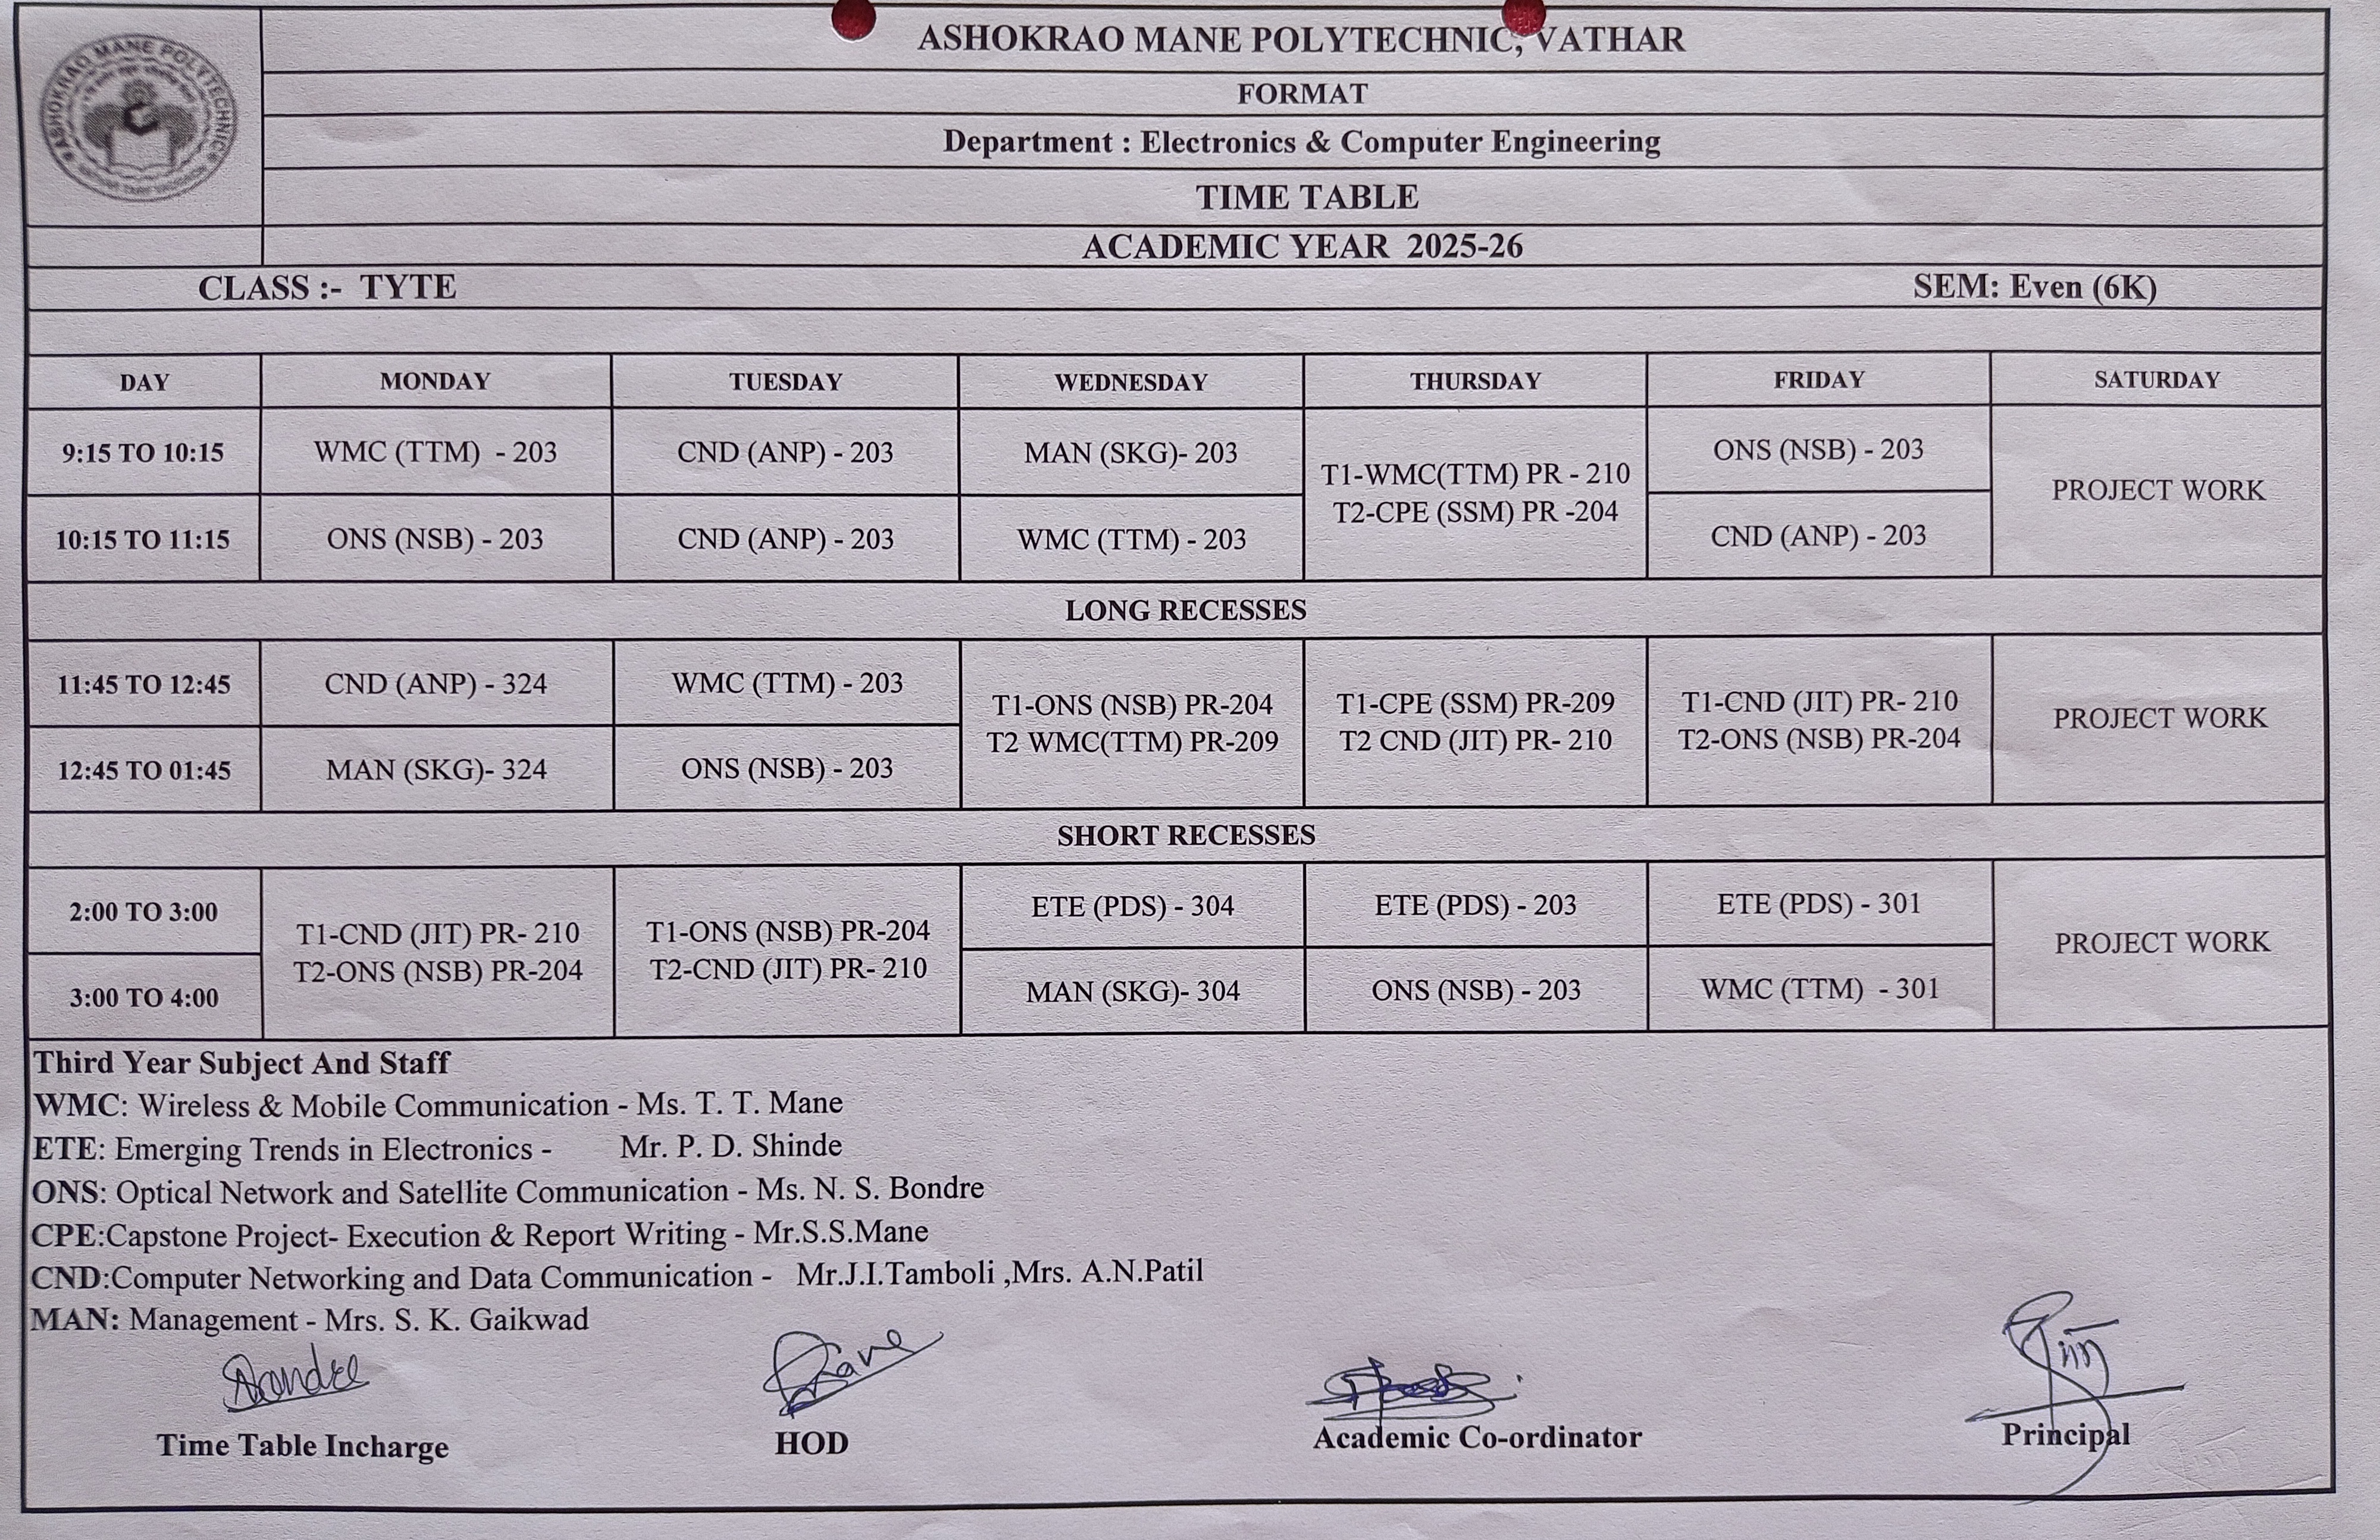 ASHOKRAO MANE POLYTECHNIC
ASHOKRAO MANE POLYTECHNIC, VATHAR
FORMAT
Department : Electronics & Computer Engineering
TIME TABLE
ACADEMIC YEAR 2025-26
CLASS :- TYTE SEM: Even (6K)
DAY MONDAY TUESDAY WEDNESDAY THURSDAY FRIDAY SATURDAY
9:15 TO 10:15 WMC (TTM) - 203 CND (ANP) - 203 MAN (SKG)- 203 T1-WMC(TTM) PR - 210 ONS (NSB) - 203 PROJECT WORK
10:15 TO 11:15 ONS (NSB) - 203 CND (ANP) - 203 WMC (TTM) - 203 T2-CPE (SSM) PR -204 CND (ANP) - 203
LONG RECESSES
11:45 TO 12:45 CND (ANP) - 324 WMC (TTM) - 203 T1-ONS (NSB) PR-204 T1-CPE (SSM) PR-209 T1-CND (JIT) PR- 210 PROJECT WORK
12:45 TO 01:45 MAN (SKG)- 324 ONS (NSB) - 203 T2 WMC(TTM) PR-209 T2 CND (JIT) PR- 210 T2-ONS (NSB) PR-204
SHORT RECESSES
2:00 TO 3:00 T1-CND (JIT) PR- 210 T1-ONS (NSB) PR-204 ETE (PDS) - 304 ETE (PDS) - 203 ETE (PDS) - 301 PROJECT WORK
3:00 TO 4:00 T2-ONS (NSB) PR-204 T2-CND (JIT) PR- 210 MAN (SKG)- 304 ONS (NSB) - 203 WMC (TTM) - 301
Third Year Subject And Staff
WMC: Wireless & Mobile Communication - Ms. T. T. Mane
ETE: Emerging Trends in Electronics - Mr. P. D. Shinde
ONS: Optical Network and Satellite Communication - Ms. N. S. Bondre
CPE:Capstone Project- Execution & Report Writing - Mr.S.S.Mane
CND:Computer Networking and Data Communication - Mr.J.I.Tamboli ,Mrs. A.N.Patil
MAN: Management - Mrs. S. K. Gaikwad
Time Table Incharge HOD Academic Co-ordinator Principal